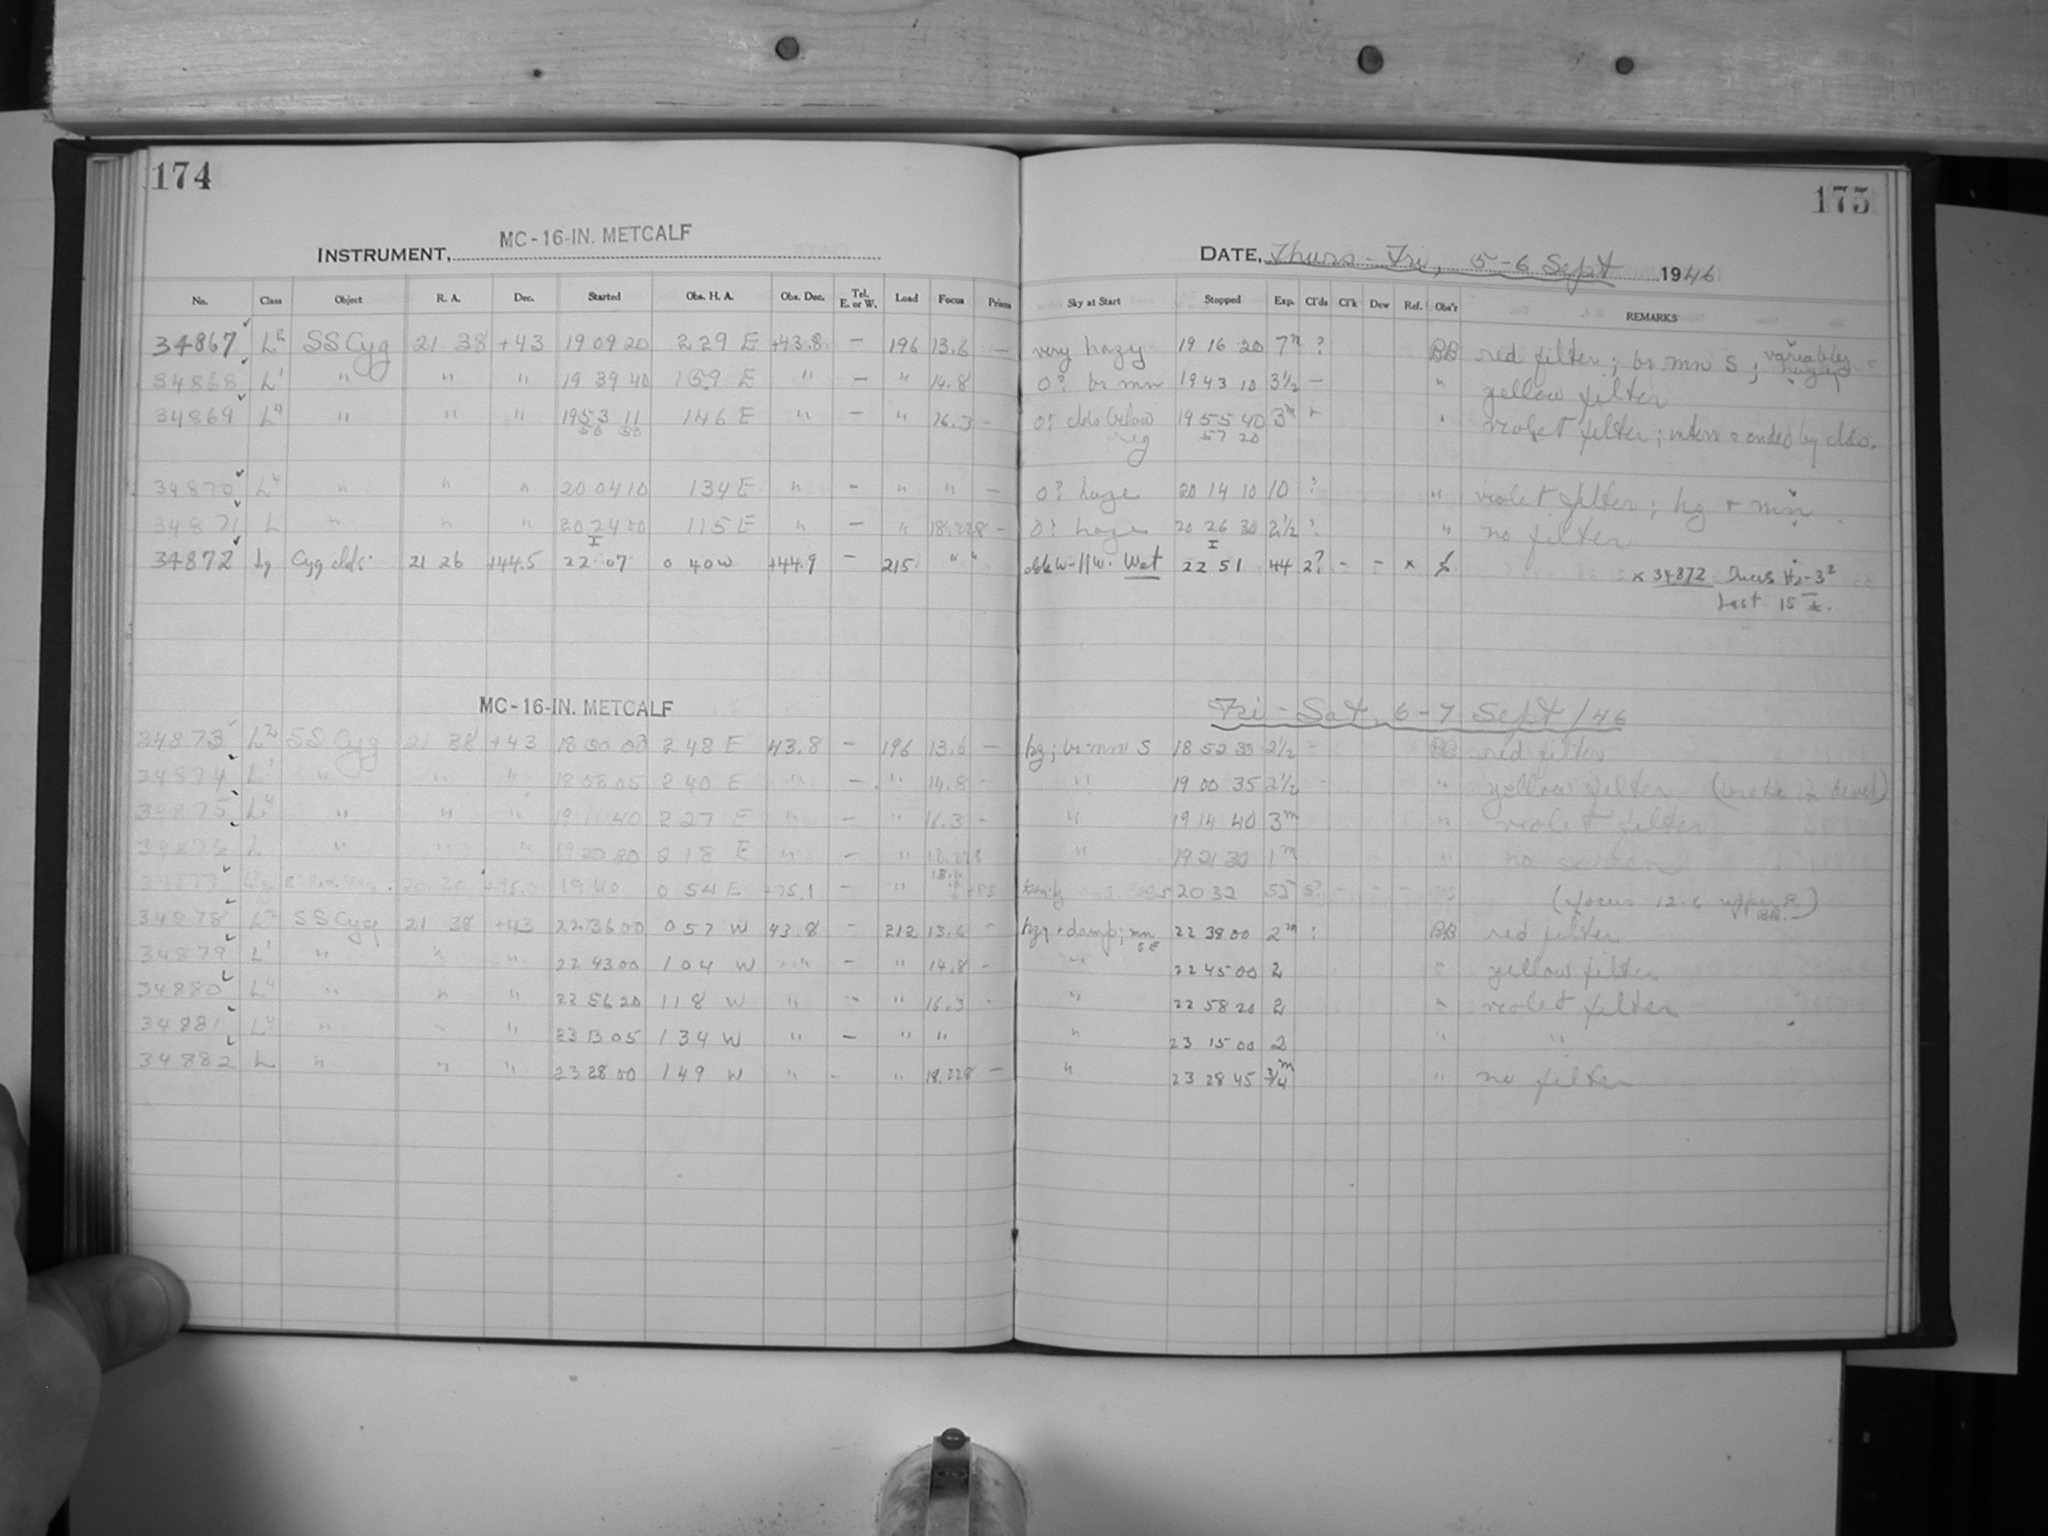 174
175
MC-16-IN. METCALF
INSTRUMENT,
DATE, Thurs - Fri, 5-6 Sept 1946
No. Class Object R. A. Dec. Started Obs. H. A. Obs. Dec. Tel. E. or W. Load Focus Prism Sky at Start Stopped Exp. Cl'ds Cl'k Dew Ref. Obs'r REMARKS
34867 L2 SS Cyg 21 38 +43 19 09 20 2 29 E +43.8 — 196 13.6 — very hazy 19 16 20 7m ? BB red filter; br mn S; variably hazy
34868 L1 " " " 19 39 40 1 59 E " — " 14.8 0? br mn 19 43 10 3½ — " yellow filter
34869 L4 " " " 19 53 11 1 46 E " — " 16.3 - 0? clds below 19 55 40 3m " violet filter; ended by clds.
56 50 reg 57 20
34870 L4 " " " 20 04 10 1 34 E " — " " — 0? haze 20 14 10 10 ? " violet filter; hg + mn
34871 L " " " 20 24 00 1 15 E " — " 18.228 - 0? haze 20 26 30 2½ ? " no filter
34872 Cyg clds 21 26 +44.5 22 07 0 40 W +44.9 — 215 " " Wet 22 51 44 2? - - x
x 34872
Last 15
MC-16-IN. METCALF
Fri - Sat, 6-7 Sept /46
34873 L2 SS Cyg 21 38 +43 18 50 00 2 48 E 43.8 — 196 13.6 — hz; br mn S 18 52 30 2½ - BB red filter
34874 L1 " " " 18 58 05 2 40 E " — " 14.8 - " 19 00 35 2½ - " yellow filter
34875 L4 " " " 19 11 40 2 27 E " — " 16.3 - " 19 14 40 3m " violet filter
34876 L " " " 19 20 30 2 18 E " — " 18.228 " 19 21 30 1m " no screen
34877 19 40 0 54 E +75.1 - " 20 32 52 5? - - - (focus 12.6 upper R.)
34878 L2 SS Cyg 21 38 +43 22 36 00 0 57 W 43.8 - 212 13.6 - hzy + damp; mn SE 22 38 00 2m : BB red filter
34879 L1 " " " 22 43 00 1 04 W " — " 14.8 - " 22 45 00 2 " yellow filter
34880 L4 " " " 22 56 20 1 18 W " — " 16.3 - " 22 58 20 2 " violet filter
34881 L4 " " " 23 13 05 1 34 W " — " " " 23 15 00 2 " "
34882 L " " " 23 28 00 1 49 W " - " 18.228 — " 23 28 45 ¾m " no filter